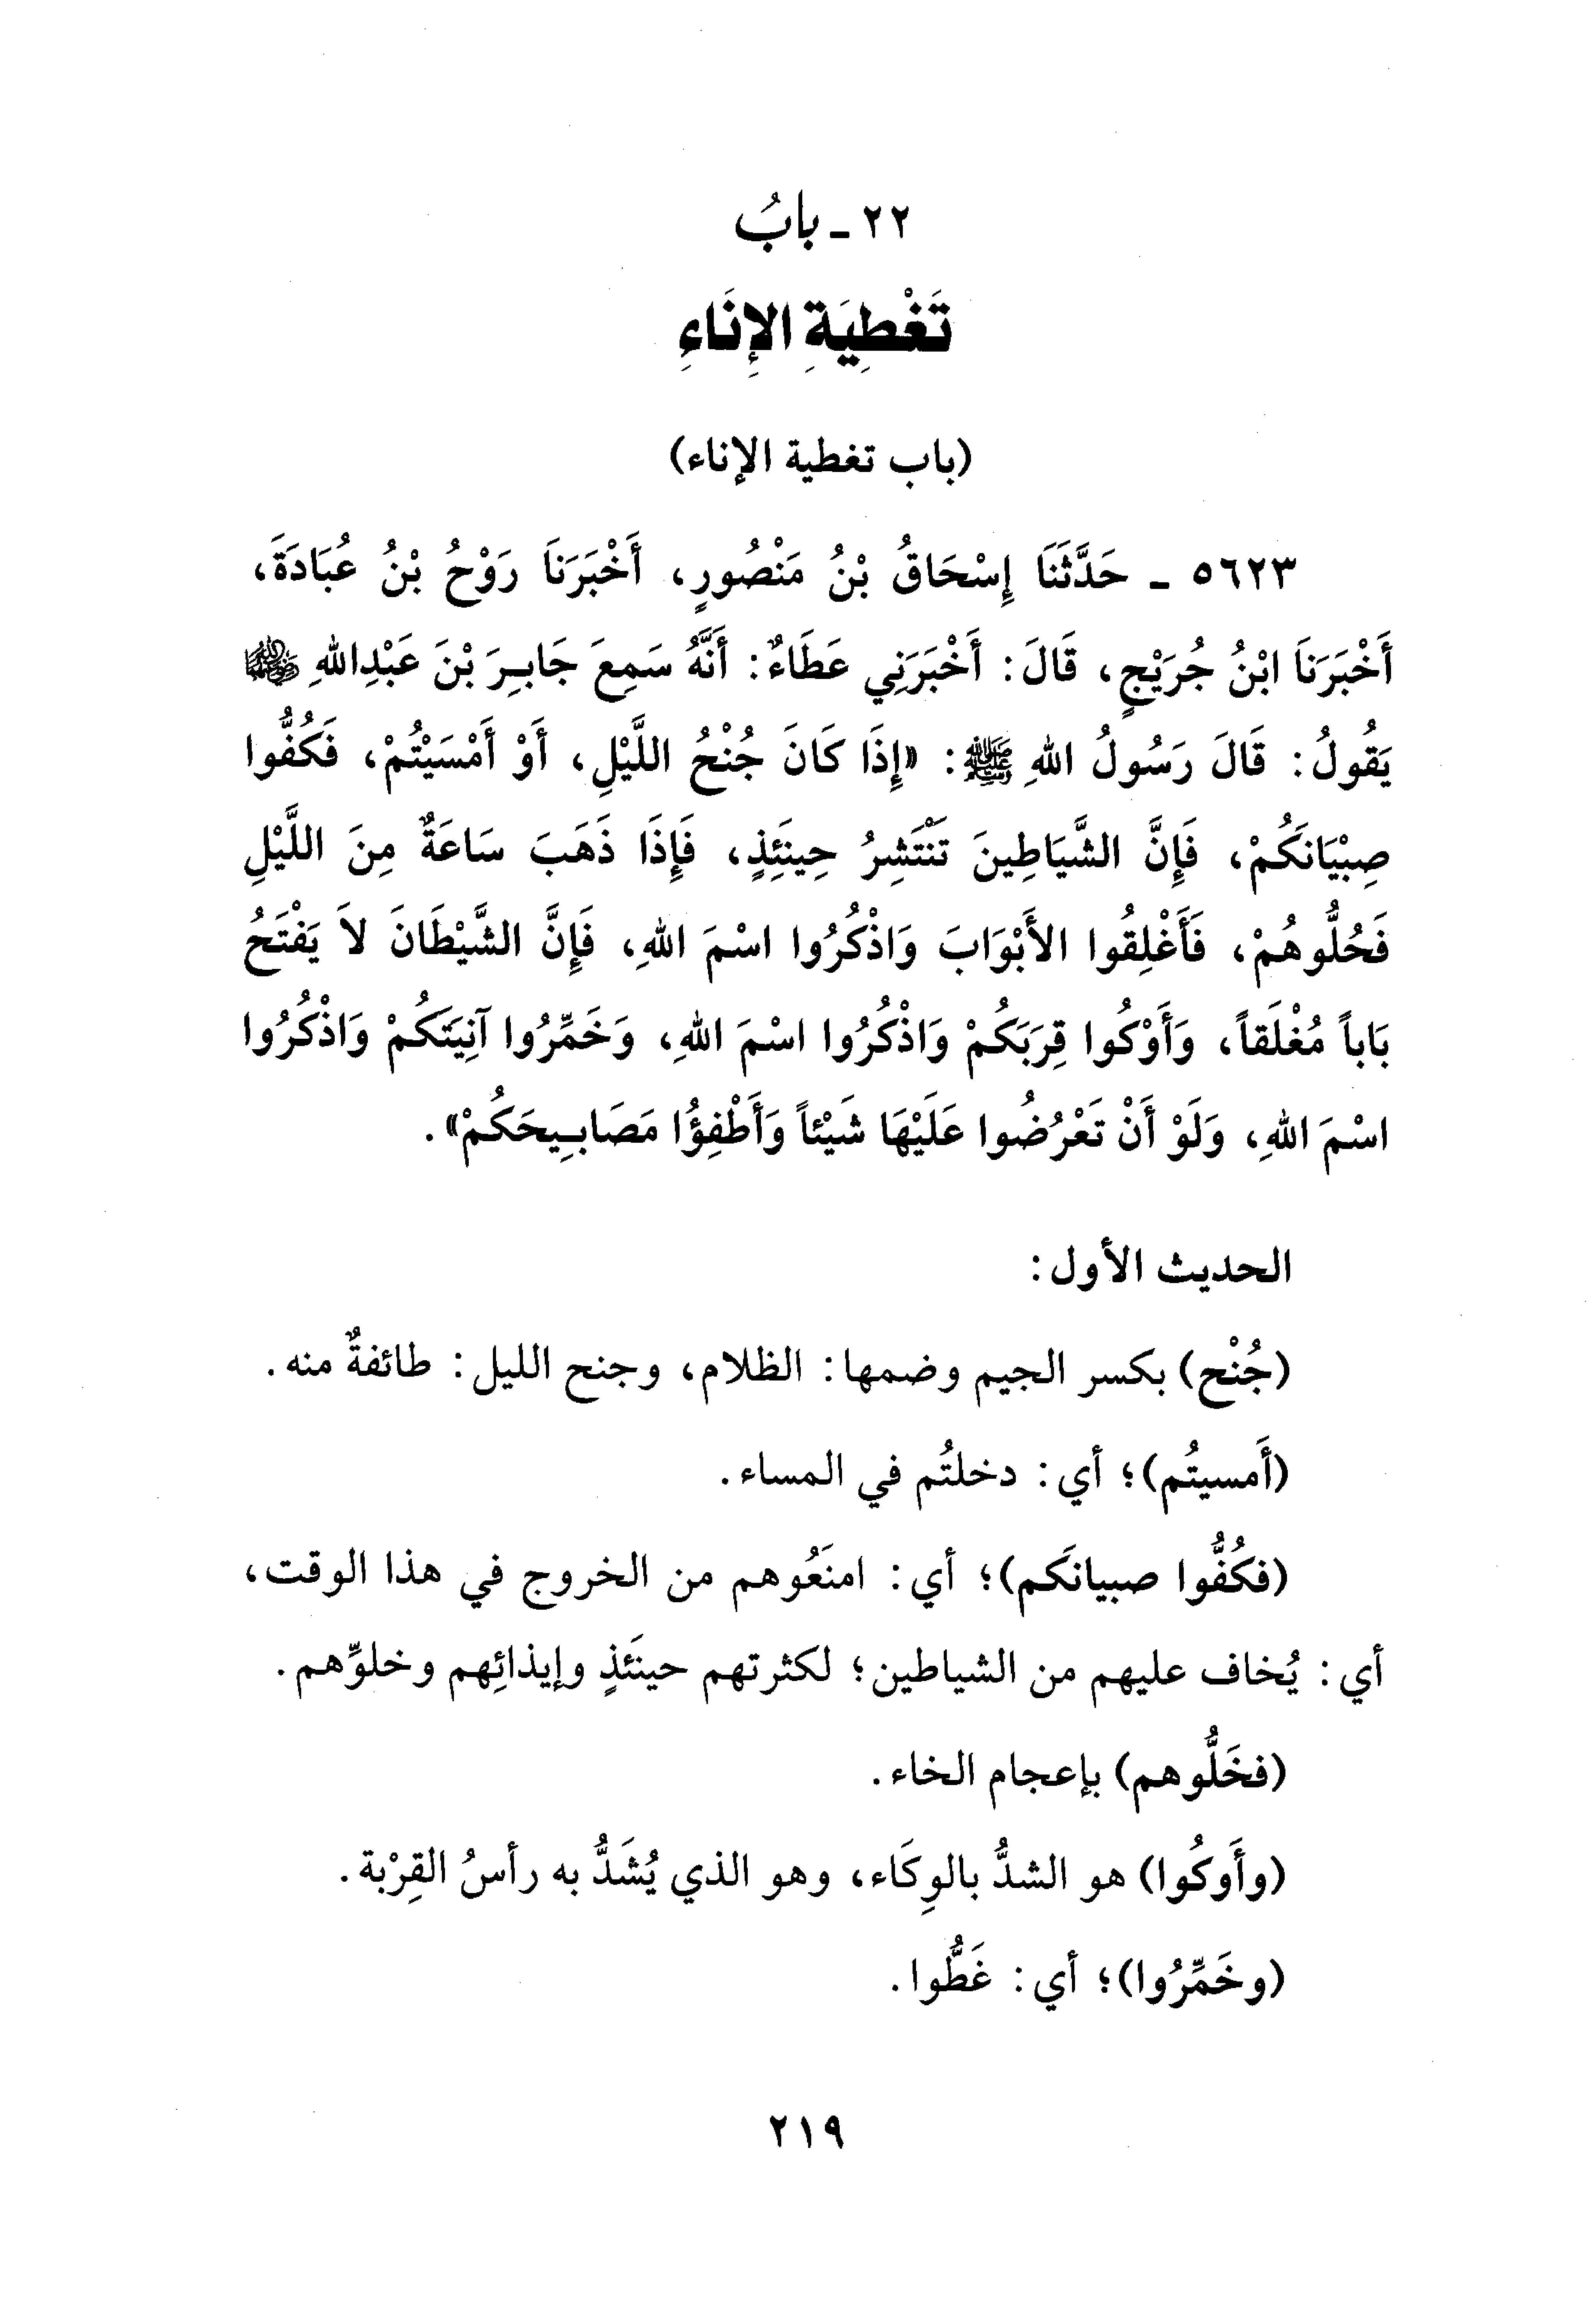 ٢٢ - بابُ
تَغْطِيَةِ الإِنَاءِ
(باب تغطية الإناء)
٥٦٢٣ - حَدَّثَنَا إِسْحَاقُ بْنُ مَنْصُورٍ، أَخْبَرَنَا رَوْحُ بْنُ عُبَادَةَ،
أَخْبَرَنَا ابْنُ جُرَيْجٍ، قَالَ: أَخْبَرَنِي عَطَاءٌ: أَنَّهُ سَمِعَ جَابِرَ بْنَ عَبْدِاللهِ
يَقُولُ: قَالَ رَسُولُ اللهِ ﷺ: «إِذَا كَانَ جُنْحُ اللَّيْلِ، أَوْ أَمْسَيْتُمْ، فَكُفُّوا
صِبْيَانَكُمْ، فَإِنَّ الشَّيَاطِينَ تَنْتَشِرُ حِينَئِذٍ، فَإِذَا ذَهَبَ سَاعَةٌ مِنَ اللَّيْلِ
فَحُلُّوهُمْ، فَأَغْلِقُوا الأَبْوَابَ وَاذْكُرُوا اسْمَ اللهِ، فَإِنَّ الشَّيْطَانَ لاَ يَفْتَحُ
بَاباً مُغْلَقاً، وَأَوْكُوا قِرَبَكُمْ وَاذْكُرُوا اسْمَ اللهِ، وَخَمِّرُوا آنِيَتَكُمْ وَاذْكُرُوا
اسْمَ اللهِ، وَلَوْ أَنْ تَعْرُضُوا عَلَيْهَا شَيْئاً وَأَطْفِؤُا مَصَابِيحَكُمْ».
الحديث الأول:
(جُنْح) بكسر الجيم وضمها: الظلام، وجنح الليل: طائفةٌ منه.
(أَمسيتُم)؛ أي: دخلتُم في المساء.
(فكُفُّوا صبيانَكم)؛ أي: امنَعُوهم من الخروج في هذا الوقت،
أي: يُخاف عليهم من الشياطين؛ لكثرتهم حينَئذٍ وإيذائِهم وخلوِّهم.
(فخَلُّوهم) بإعجام الخاء.
(وأَوكُوا) هو الشدُّ بالوِكَاء، وهو الذي يُشَدُّ به رأسُ القِرْبة.
(وخَمِّرُوا)؛ أي: غَطُّوا.
٢١٩